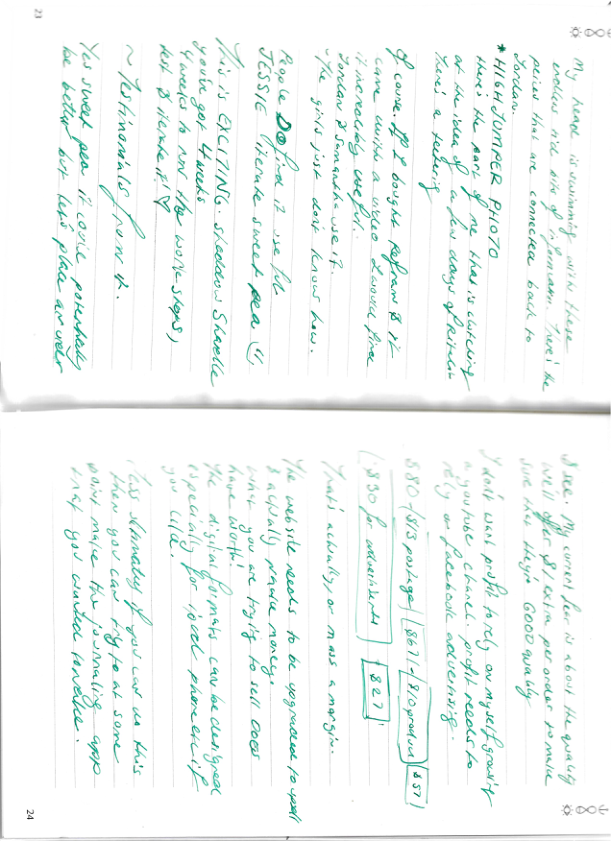 My head is swimming with these
endless little bits of information. There's the
pieces that are connected back to
Jordan.
* HIGH JUMPER PHOTO
there's the part of me that is clutching
at the idea of a few days of
There's a feeling
Of course. If I bought & it
came with a video I would find
it incredibly useful.
Jordan & Samantha use it.
~ The girls just don't know how.
People DO find it useful
JESSIE literate sweet pea
This is EXCITING. Shaddow Shaelle
you've got 4 weeks
4 weeks to now the work shops,
test & it!
~ Testimonials from it.
Yes sweet pea it could potentially
be better but lets place an order
23
I see. My current fear is about the quality
we'll offer $1 extra per order to make
sure that they're GOOD quality
I don't want profit to rely on myself growing
a youtube channel. profit needs to
rely on facebook advertising.
$80 - $13 postage $67 - $10 product $57
$30 for advertisements $27
That's actually, a margin.
The website needs to be upgraded to
& actually make money.
what you are trying to sell does
have worth!
The digital formats can be designed
especially for ipad, phone etc if
you like.
then you can try to at some
point make the journaling app
that you wanted to make.
24